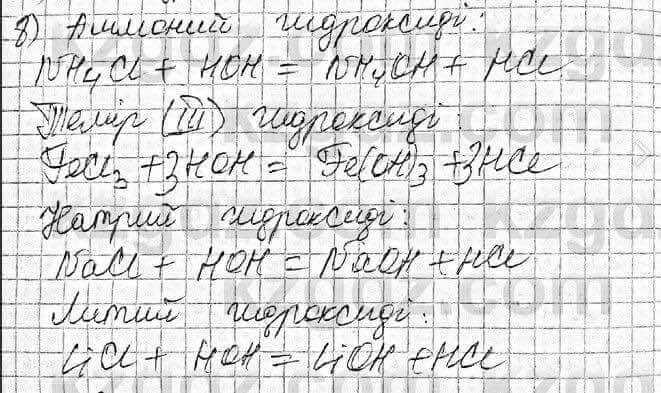 8) Аммоний гидроксиді:
NH₄Cl + HOH = NH₄OH + HCl
Темір (III) гидроксиді:
FeCl₃ + 3HOH = Fe(OH)₃ + 3HCl
Натрий гидроксиді:
NaCl + HOH = NaOH + HCl
Литий гидроксиді:
LiCl + HOH = LiOH + HCl